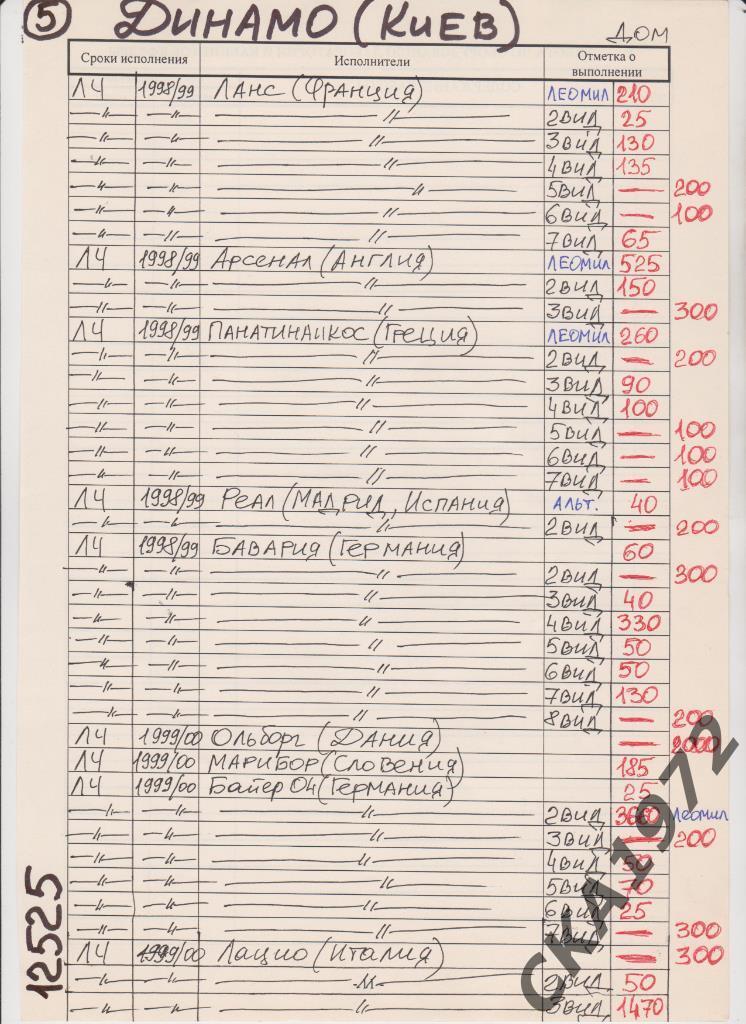 5 ДИНАМО (КИЕВ) ДОМ
Сроки исполнения Исполнители Отметка о выполнении
ЛЧ 1998/99 ЛАНС (ФРАНЦИЯ) ЛЕОМИЛ 210
—〃— —〃— —〃— 2ВИД 25
—〃— —〃— —〃— 3ВИД 130
—〃— —〃— —〃— 4ВИД 135
—〃— —〃— —〃— 5ВИД — 200
—〃— —〃— —〃— 6ВИД — 100
—〃— —〃— —〃— 7ВИД 65
ЛЧ 1998/99 АРСЕНАЛ (АНГЛИЯ) ЛЕОМИЛ 525
—〃— —〃— —〃— 2ВИД 150
—〃— —〃— —〃— 3ВИД — 300
ЛЧ 1998/99 ПАНАТИНАИКОС (ГРЕЦИЯ) ЛЕОМИЛ 260
—〃— —〃— —〃— 2ВИД — 200
—〃— —〃— —〃— 3ВИД 90
—〃— —〃— —〃— 4ВИД 100
—〃— —〃— —〃— 5ВИД — 100
—〃— —〃— —〃— 6ВИД — 100
—〃— —〃— —〃— 7ВИД — 100
ЛЧ 1998/99 РЕАЛ (МАДРИД, ИСПАНИЯ) АЛЬТ. 40
—〃— —〃— —〃— 2ВИД — 200
ЛЧ 1998/99 БАВАРИЯ (ГЕРМАНИЯ) 60
—〃— —〃— —〃— 2ВИД — 300
—〃— —〃— —〃— 3ВИД 40
—〃— —〃— —〃— 4ВИД 330
—〃— —〃— —〃— 5ВИД 50
—〃— —〃— —〃— 6ВИД 50
—〃— —〃— —〃— 7ВИД 130
—〃— —〃— —〃— 8ВИД — 200
ЛЧ 1999/00 ОЛЬБОРГ (ДАНИЯ) — 2000
ЛЧ 1999/00 МАРИБОР (СЛОВЕНИЯ) 185
ЛЧ 1999/00 БАЙЕР 04 (ГЕРМАНИЯ) 25
—〃— —〃— —〃— 2ВИД ЛЕОМИЛ
—〃— —〃— —〃— 3ВИД — 200
—〃— —〃— —〃— 4ВИД 50
—〃— —〃— —〃— 5ВИД 70
—〃— —〃— —〃— 6ВИД 25
—〃— —〃— —〃— 7ВИД — 300
ЛЧ 1999/00 ЛАЦИО (ИТАЛИЯ) — 300
—〃— —〃— —〃— 2ВИД 50
—〃— —〃— —〃— 3ВИД 1470
12525
СКА1972